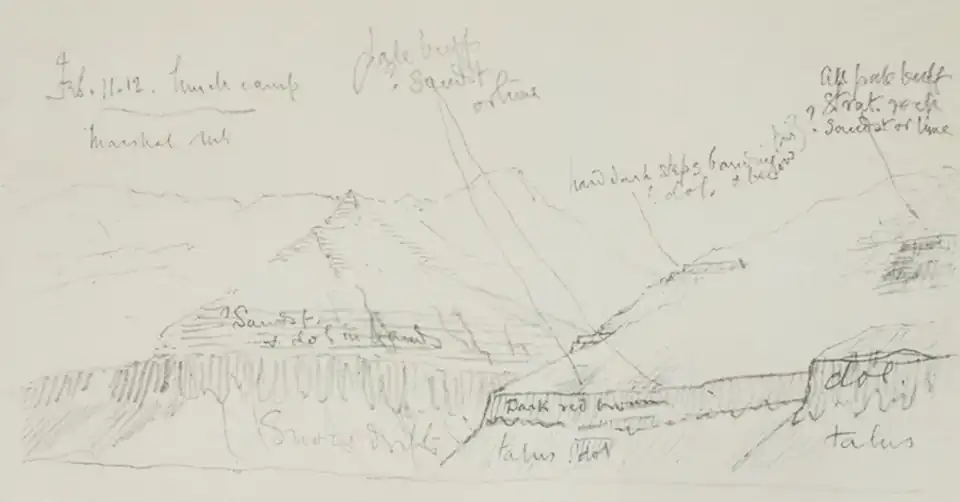 Feb. 11.12. Lunch camp
Marshal Mts
pale buff
? Sandst
or lime
All pale buff
Strat. rock
? Sandst or lime
hard dark steps
? dol. &
? Sandst.
& dol in
Dark red
Snow drifts
talus ? dol
dol
talus